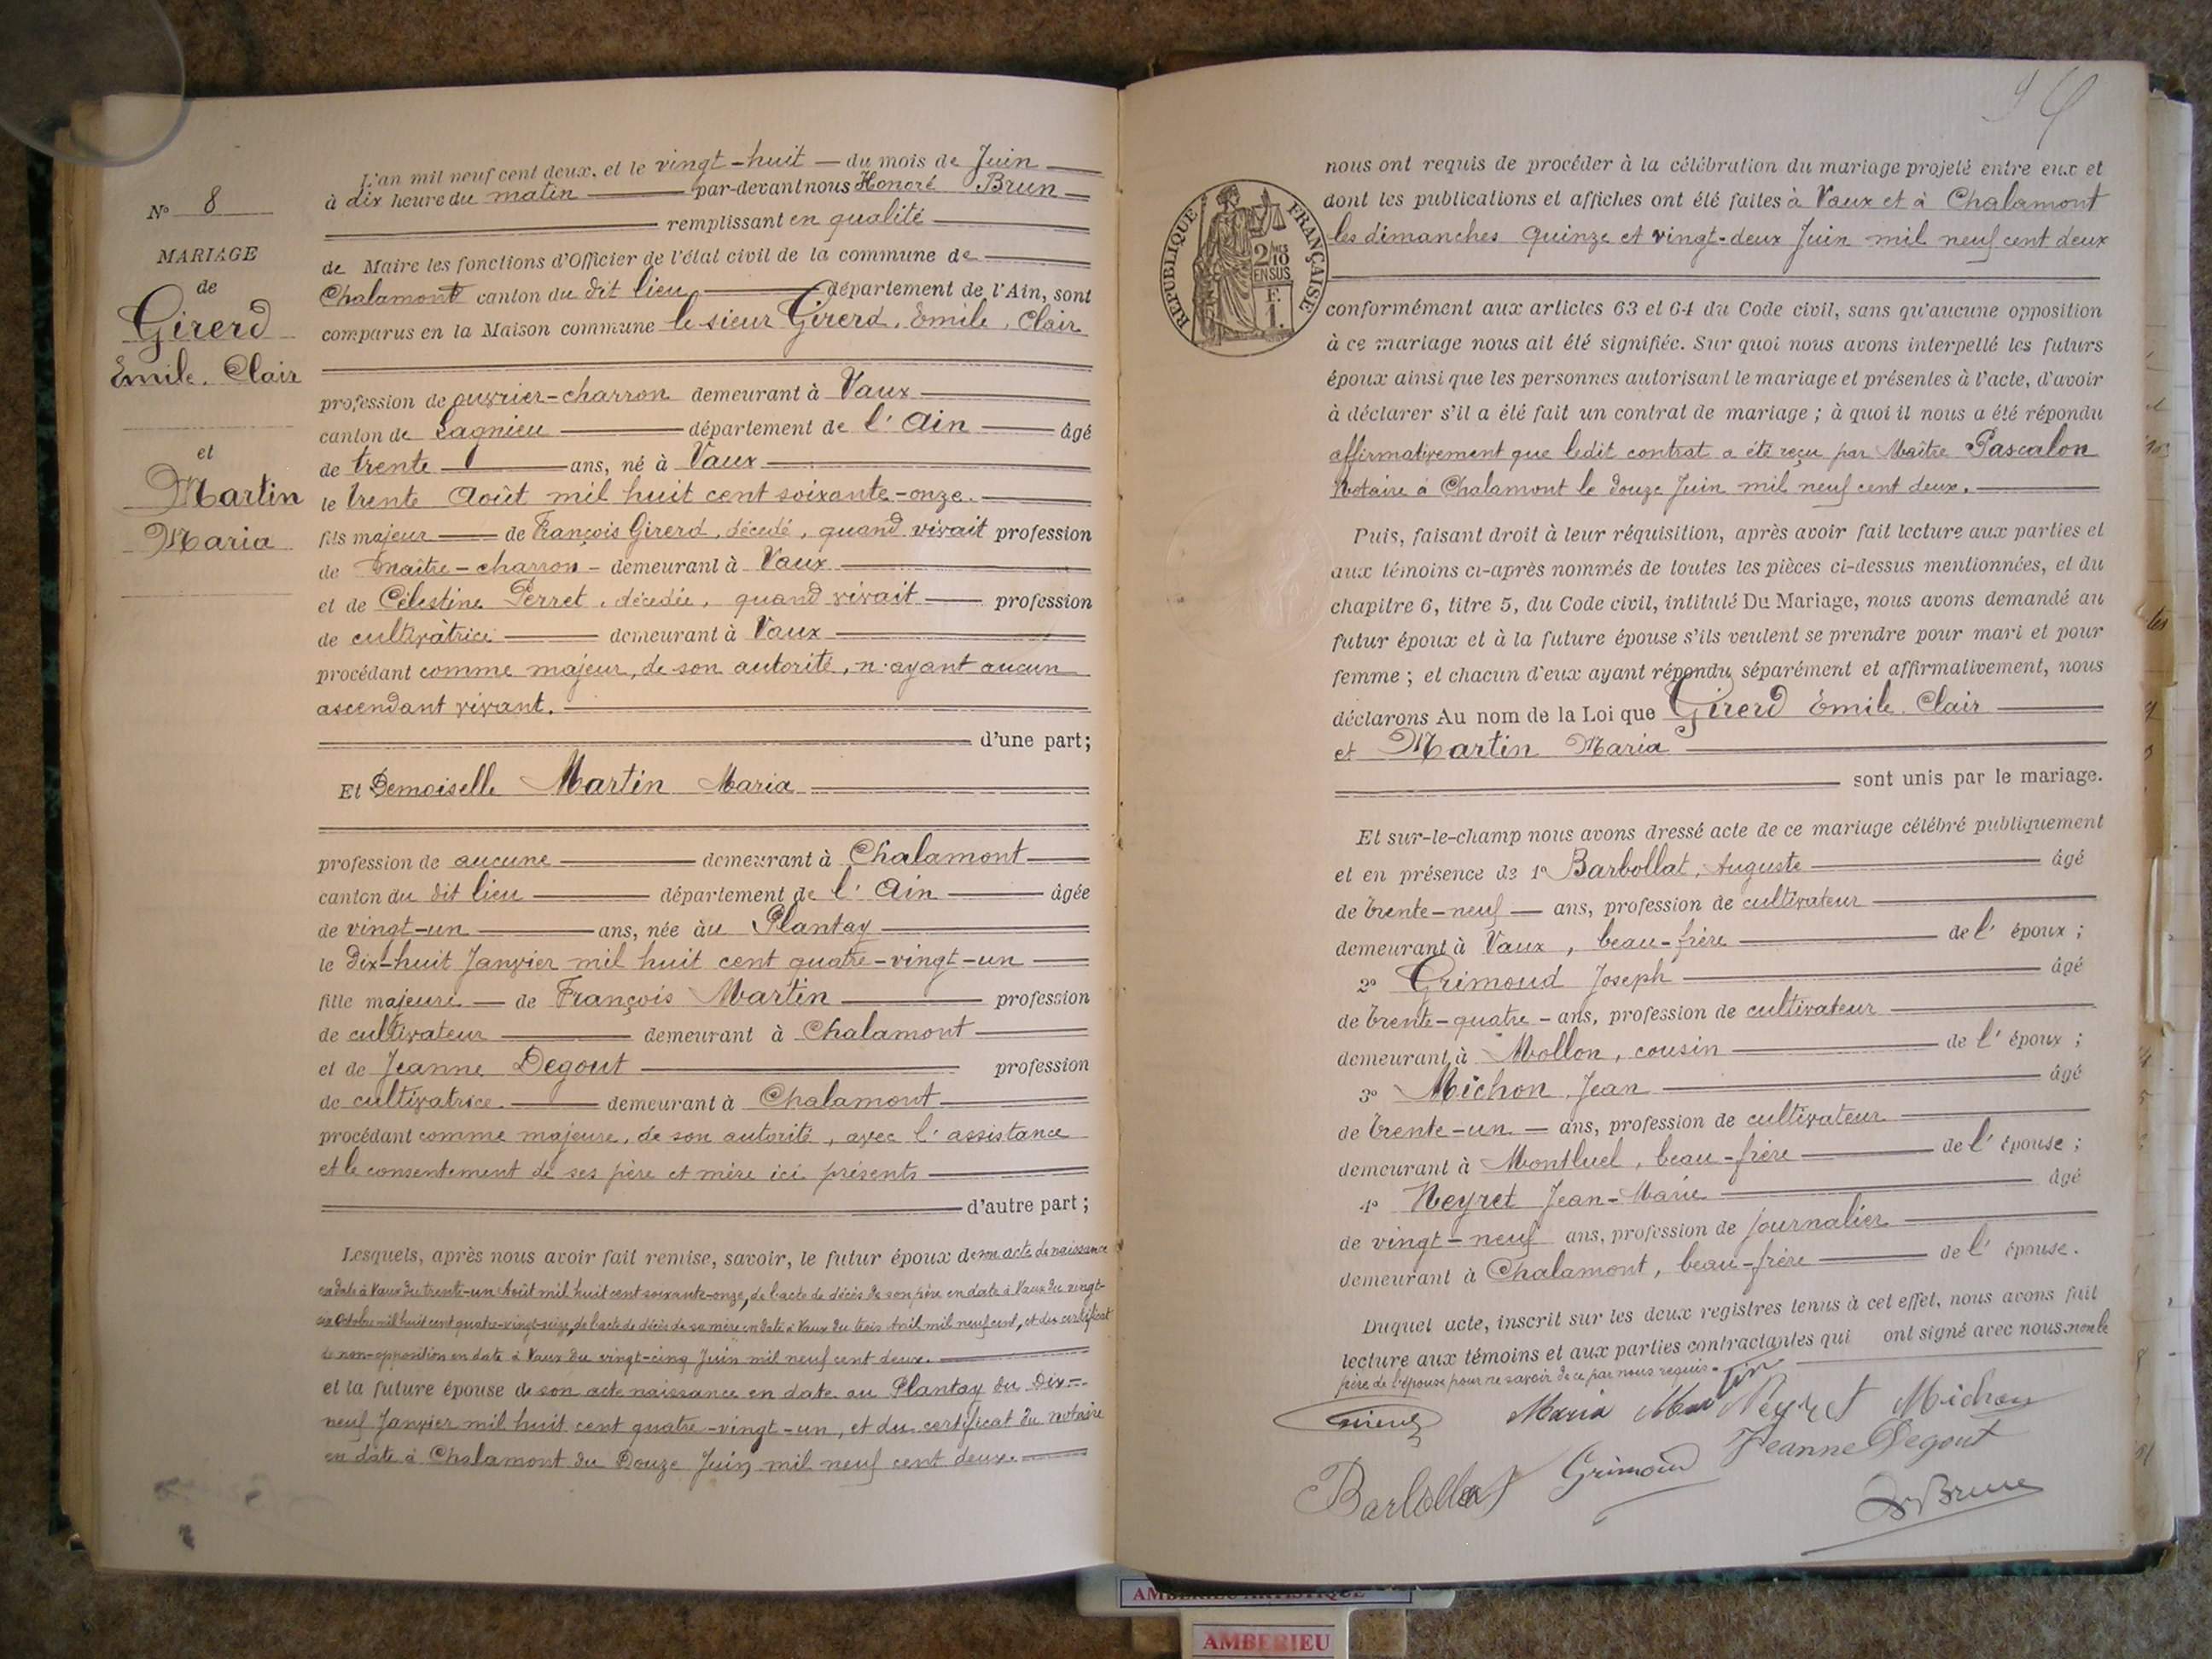 N° 8
MARIAGE
de
Girerd
Emile. Clair
et
Martin
Maria
L'an mil neuf cent deux, et le vingt-huit — du mois de Juin
à dix heure du matin — par-devant nous Honoré Brun
remplissant en qualité
de Maire les fonctions d'Officier de l'état civil de la commune de
Chalamont canton du dit lieu département de l'Ain, sont
comparus en la Maison commune le sieur Girerd, Emile, Clair
profession de ouvrier-charron demeurant à Vaux
canton de Lagnieu département de l'Ain âgé
de trente ans, né à Vaux
le trente Août mil huit cent soixante-onze.
fils majeur — de François Girerd, décédé, quand vivait profession
de maître-charron - demeurant à Vaux
et de Célestine Perret, décédée, quand vivait — profession
de cultivatrice demeurant à Vaux
procédant comme majeur, de son autorité, n'ayant aucun
ascendant vivant.
d'une part;
Et Demoiselle Martin Maria
profession de aucune demeurant à Chalamont
canton du dit lieu département de l'Ain âgée
de vingt-un ans, née au Plantay
le dix-huit Janvier mil huit cent quatre-vingt-un
fille majeure — de François Martin profession
de cultivateur demeurant à Chalamont
et de Jeanne Degout profession
de cultivatrice demeurant à Chalamont
procédant comme majeure, de son autorité, avec l'assistance
et le consentement de ses père et mère ici présents
d'autre part;
Lesquels, après nous avoir fait remise, savoir, le futur époux de son acte de naissance
en date à Vaux du trente-un Août mil huit cent soixante-onze, de l'acte de décès de son père en date à Vaux du vingt-
six Octobre mil huit cent quatre-vingt-seize, de l'acte de décès de sa mère en date à Vaux du trois Avril mil neuf cent, et du certificat
de non-opposition en date à Vaux du vingt-cinq Juin mil neuf cent deux.
et la future épouse de son acte naissance en date au Plantay du Dix-
neuf Janvier mil huit cent quatre-vingt-un, et du certificat du notaire
en date à Chalamont du Douze Juin mil neuf cent deux.
RÉPUBLIQUE FRANÇAISE
2/10
EN SUS
F.
1.
nous ont requis de procéder à la célébration du mariage projeté entre eux et
dont les publications et affiches ont été faites à Vaux et à Chalamont
les dimanches quinze et vingt-deux Juin mil neuf cent deux
conformément aux articles 63 et 64 du Code civil, sans qu'aucune opposition
à ce mariage nous ait été signifiée. Sur quoi nous avons interpellé les futurs
époux ainsi que les personnes autorisant le mariage et présentes à l'acte, d'avoir
à déclarer s'il a été fait un contrat de mariage ; à quoi il nous a été répondu
affirmativement que ledit contrat a été reçu par Maître Pascalon
Notaire à Chalamont le douze Juin mil neuf cent deux.
Puis, faisant droit à leur réquisition, après avoir fait lecture aux parties et
aux témoins ci-après nommés de toutes les pièces ci-dessus mentionnées, et du
chapitre 6, titre 5, du Code civil, intitulé Du Mariage, nous avons demandé au
futur époux et à la future épouse s'ils veulent se prendre pour mari et pour
femme ; et chacun d'eux ayant répondu séparément et affirmativement, nous
déclarons Au nom de la Loi que Girerd Emile Clair
et Martin Maria
sont unis par le mariage.
Et sur-le-champ nous avons dressé acte de ce mariage célébré publiquement
et en présence de 1° Barbollat, Auguste âgé
de trente-neuf — ans, profession de cultivateur
demeurant à Vaux, beau-frère de l'époux ;
2° Grimoud Joseph âgé
de trente-quatre - ans, profession de cultivateur
demeurant à Mollon, cousin de l'époux ;
3° Michon Jean âgé
de trente-un — ans, profession de cultivateur
demeurant à Montluel, beau-frère de l'épouse ;
4° Neyret Jean-Marie âgé
de vingt-neuf ans, profession de journalier
demeurant à Chalamont, beau-frère de l'épouse.
Duquel acte, inscrit sur les deux registres tenus à cet effet, nous avons fait
lecture aux témoins et aux parties contractantes qui ont signé avec nous. non le
père de l'épouse pour ne savoir de ce par nous requis.
Girerd Maria Martin Neyret Michon
Barbollat Grimoud Jeanne Degout
H Brun
AMBERIEU ARTISTIQUE
AMBERIEU